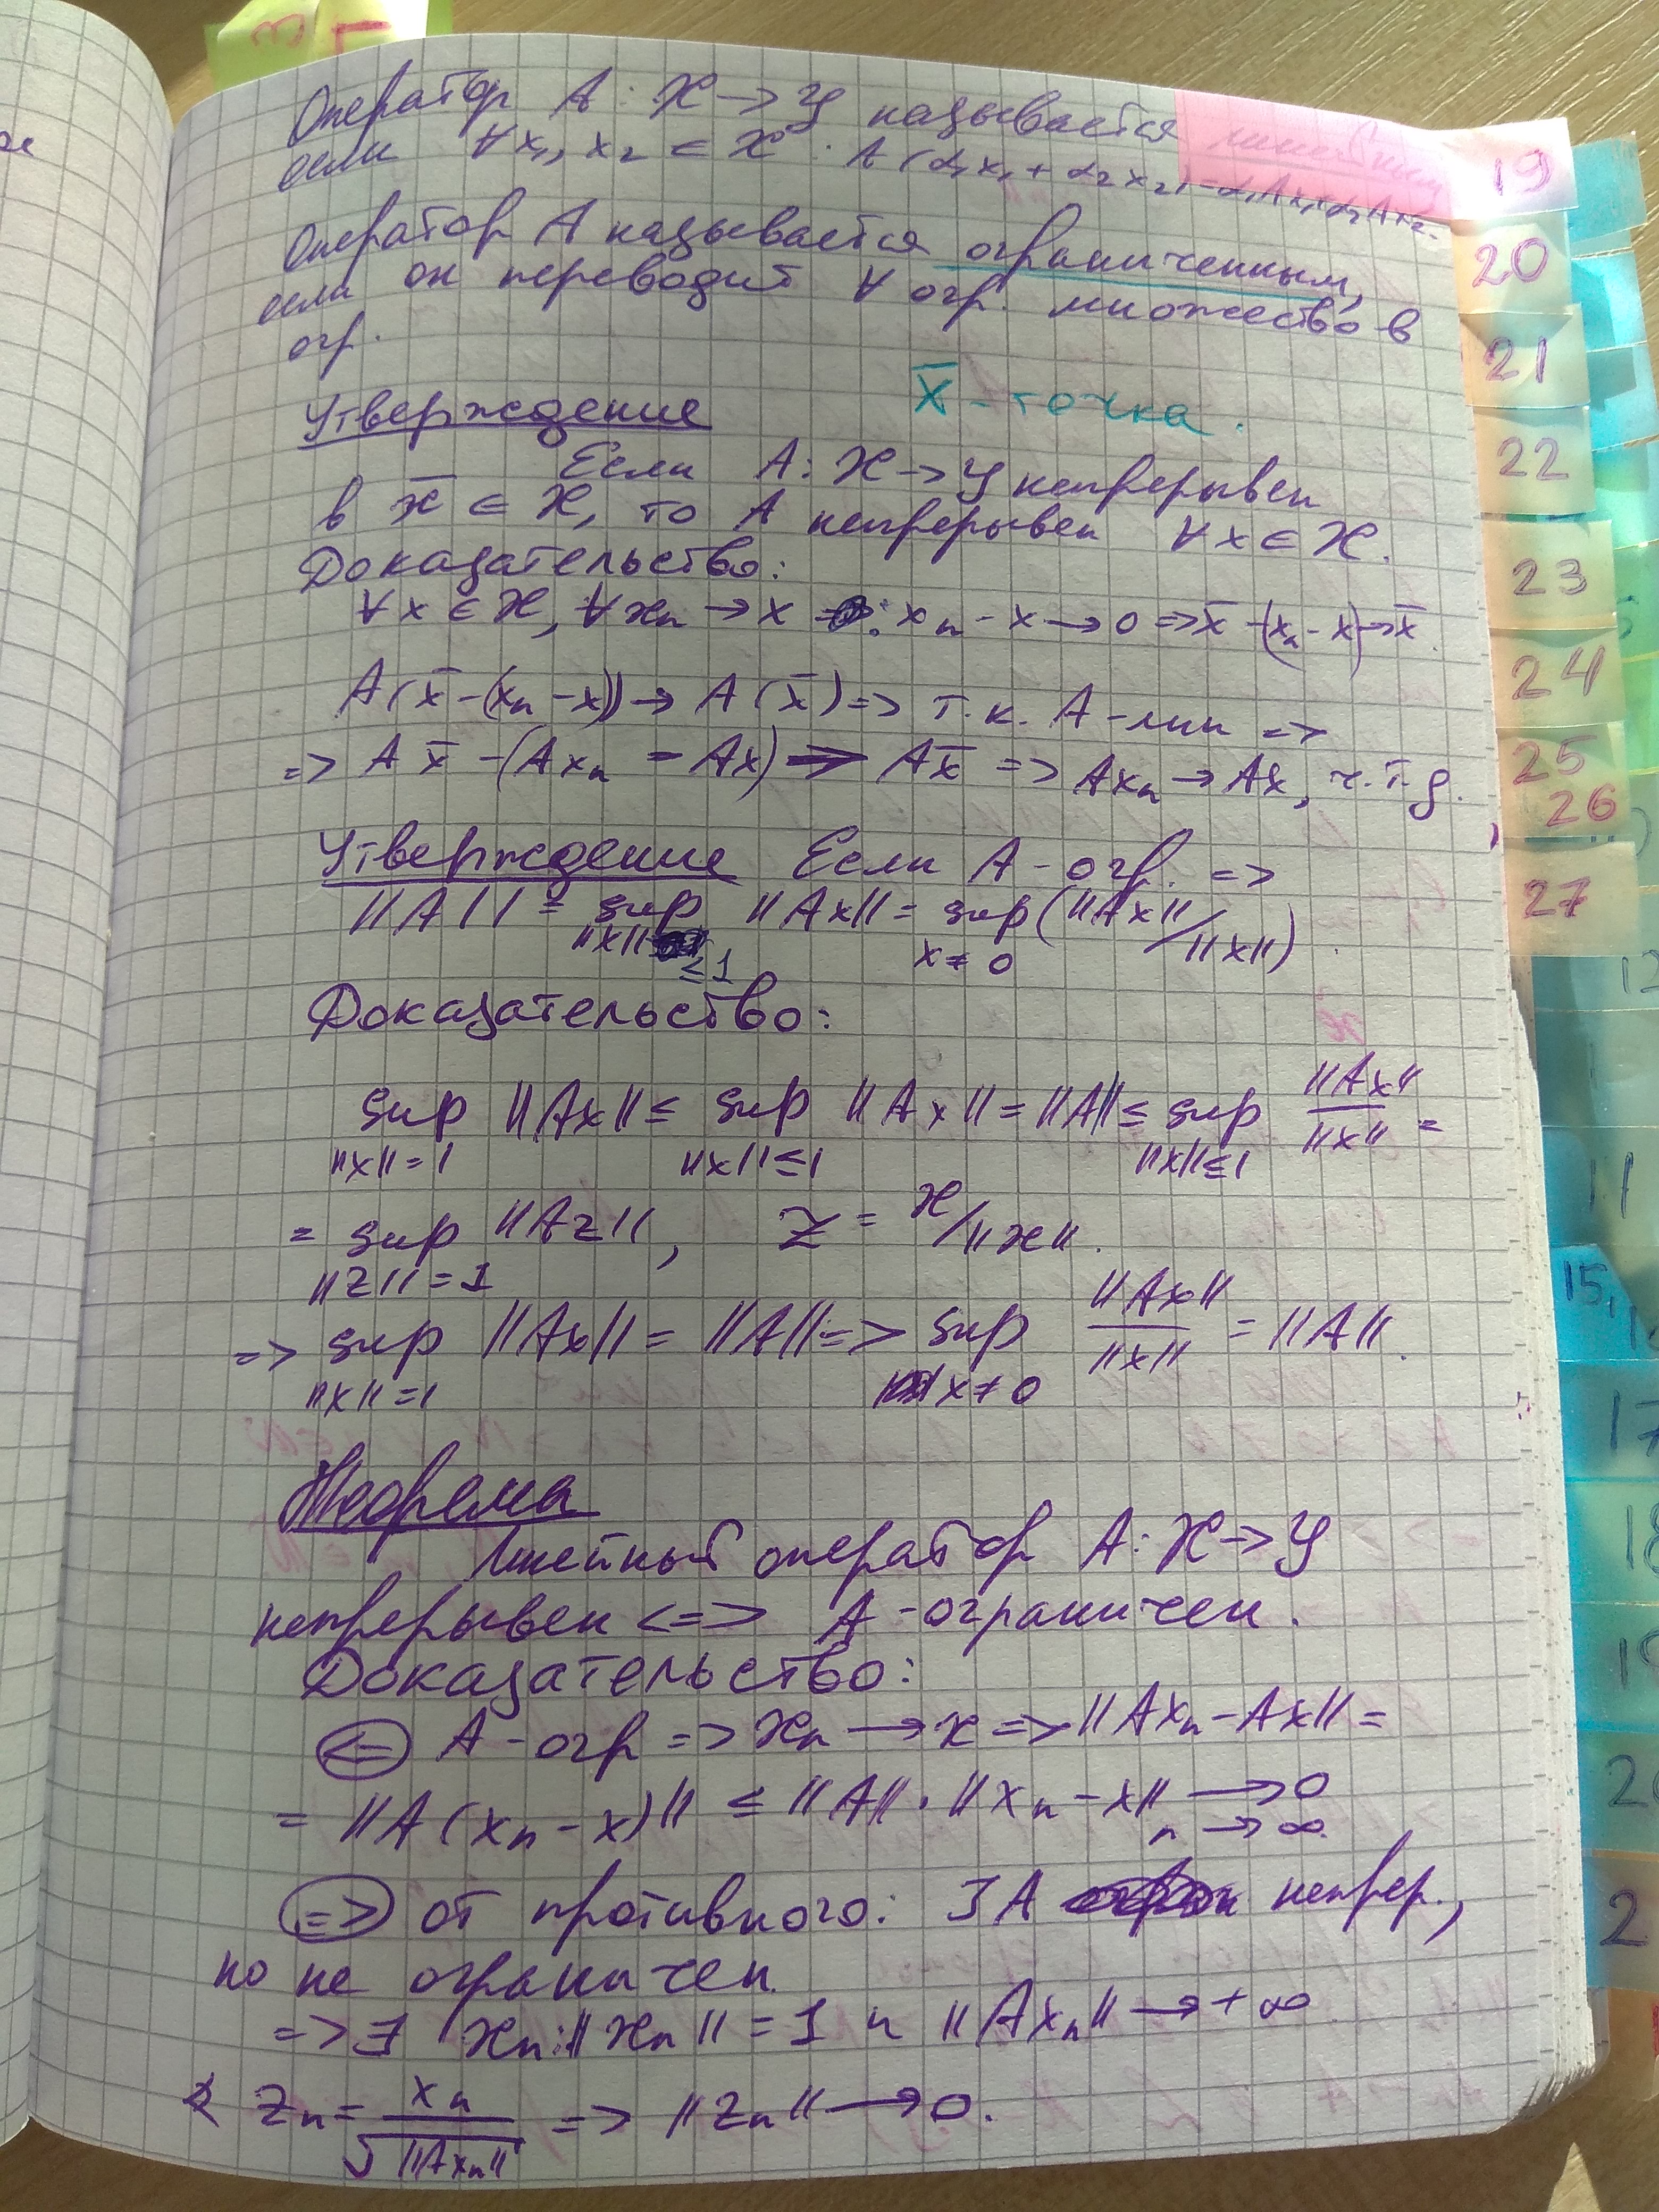 Оператор A: X → Y называется линейным
если ∀x₁, x₂ ∈ X : A(α₁x₁ + α₂x₂) = α₁Ax₁ + α₂Ax₂.
Оператор A называется ограниченным,
если он переводит ∀ огр. множество в
огр.
x̄ - точка.
Утверждение
Если A: X → Y непрерывен
в x̄ ∈ X, то A непрерывен ∀x ∈ X.
Доказательство:
∀x ∈ X, ∀xₙ → x : xₙ - x → 0 => x̄ - (xₙ - x) → x̄
A(x̄ - (xₙ - x)) → A(x̄) => т.к. A - лин =>
=> A x̄ - (Axₙ - Ax) → Ax̄ => Axₙ → Ax, ч.т.д.
Утверждение Если A - огр. =>
||A|| = sup ||Ax|| = sup (||Ax|| / ||x||)
||x|| ≤ 1 x ≠ 0
Доказательство:
sup ||Ax|| ≤ sup ||Ax|| = ||A|| ≤ sup ||Ax||/||x|| =
||x|| = 1 ||x|| ≤ 1 ||x|| ≤ 1
= sup ||Az||, z = x/||x||.
||z|| = 1
=> sup ||Ax|| = ||A|| => sup ||Ax||/||x|| = ||A||.
||x|| = 1 x ≠ 0
Теорема
Линейный оператор A: X → Y
непрерывен <=> A - ограничен.
Доказательство:
<= A - огр => xₙ → x => ||Axₙ - Ax|| =
= ||A(xₙ - x)|| ≤ ||A|| · ||xₙ - x|| → 0
n → ∞
=> от противного: ] A непрер.,
но не ограничен
=> ∃ xₙ: ||xₙ|| = 1 и ||Axₙ|| → +∞
zₙ = xₙ/√||Axₙ|| => ||zₙ|| → 0.
19
20
21
22
23
24
25
26
27
12
11
15,
17
18
19
2